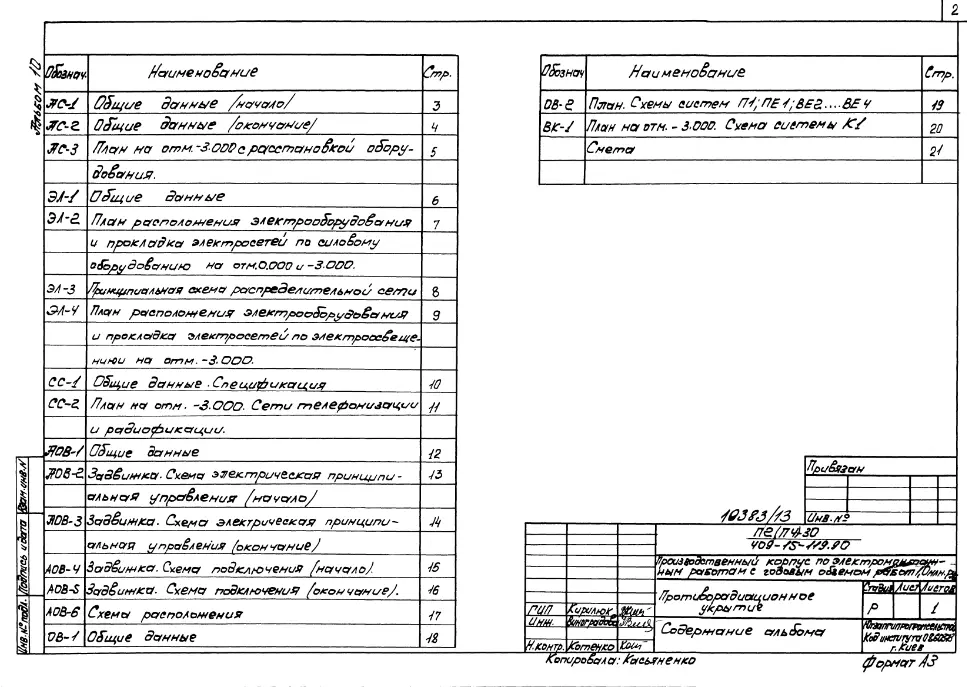 2
Альбом 10
Обознач. Наименование Стр.
АС-1 Общие данные (начало) 3
АС-2 Общие данные (окончание) 4
АС-3 План на отм.-3.000 с расстановкой обору- 5
дования.
ЭЛ-1 Общие данные 6
ЭЛ-2 План расположения электрооборудования 7
и прокладка электросетей по силовому
оборудованию на отм.0.000 и -3.000.
ЭЛ-3 Принципиальная схема распределительной сети 8
ЭЛ-4 План расположения электрооборудования 9
и прокладка электросетей по электроосвеще-
нию на отм. -3.000.
СС-1 Общие данные. Спецификация 10
СС-2 План на отм. -3.000. Сети телефонизации 11
и радиофикации.
АОВ-1 Общие данные 12
АОВ-2 Задвижка. Схема электрическая принципи- 13
альная управления (начало)
АОВ-3 Задвижка. Схема электрическая принципи- 14
альная управления (окончание)
АОВ-4 Задвижка. Схема подключения (начало). 15
АОВ-5 Задвижка. Схема подключения (окончание). 16
АОВ-6 Схема расположения 17
ОВ-1 Общие данные 18
Обознач Наименование Стр.
ОВ-2 План. Схемы систем П1; ПЕ1; ВЕ2....ВЕ4 19
ВК-1 План на отм. - 3.000. Схема системы К1 20
Смета 21
Взам.инв.N
Подпись и дата
Инв.№ подл.
Привязан
Инв. №
10383/13
ПЕ(ПЧ)-30
409-15-119.90
Производственный корпус по электромонтаж-
ным работам с годовым объемом работ
Противорадиационное
укрытие
Стадия Лист Листов
Р 1
ГИП Кирилюк
Инж. Виноградова
Н.контр. Котенко
Содержание альбома
Код института
г. Киев
Копировала: Касьяненко
Формат А3